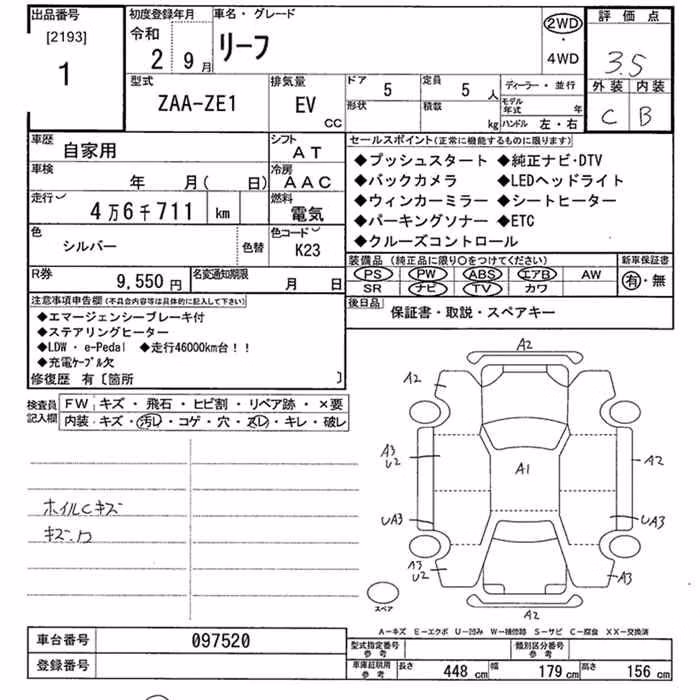 出品番号
[2193]
1
初度登録年月
令和
2 9月
車名・グレード
リーフ
2WD
・
4WD
評価点
3.5
外装 内装
C B
型式
ZAA-ZE1
排気量
EV
CC
ドア 5
定員 5 人
形状
積載
kg
ディーラー・並行
モデル年式 年
ハンドル 左・右
車歴
自家用
シフト
AT
車検
年 月( 日)
冷房
AAC
走行
4万6千711 km
燃料
電気
色
シルバー
色替
色コード
K23
R券
9,550円
名変通知期限
月 日
セールスポイント(正常に機能するものに限ります)
◆プッシュスタート ◆純正ナビ・DTV
◆バックカメラ ◆LEDヘッドライト
◆ウィンカーミラー ◆シートヒーター
◆パーキングソナー ◆ETC
◆クルーズコントロール
装備品(純正品に限り〇をつけてください)
PS PW ABS エアB AW
SR ナビ TV カワ
新車保証書
有・無
後日品
保証書・取説・スペアキー
注意事項申告欄(不具合内容等は具体的に記入して下さい)
◆エマージェンシーブレーキ付
◆ステアリングヒーター
◆LDW・e-Pedal ◆走行46000km台!!
◆充電ケーブル欠
修復歴 有〔箇所 〕
検査員記入欄
FW キズ・飛石・ヒビ割・リペア跡・×要
内装 キズ・汚レ・コゲ・穴・スレ・キレ・破レ
ホイルCキズ
A2
A2
A3
U2
A1
A2
UA3
UA3
A3
U2
A3
A2
スペア
A-キズ E-エクボ U-凹み W-補修跡 S-サビ C-腐食 XX-交換済
車台番号 097520
登録番号
型式指定番号
参考
類別区分番号
参考
車庫証明用
参考
長さ 448 cm 幅 179 cm 高さ 156 cm